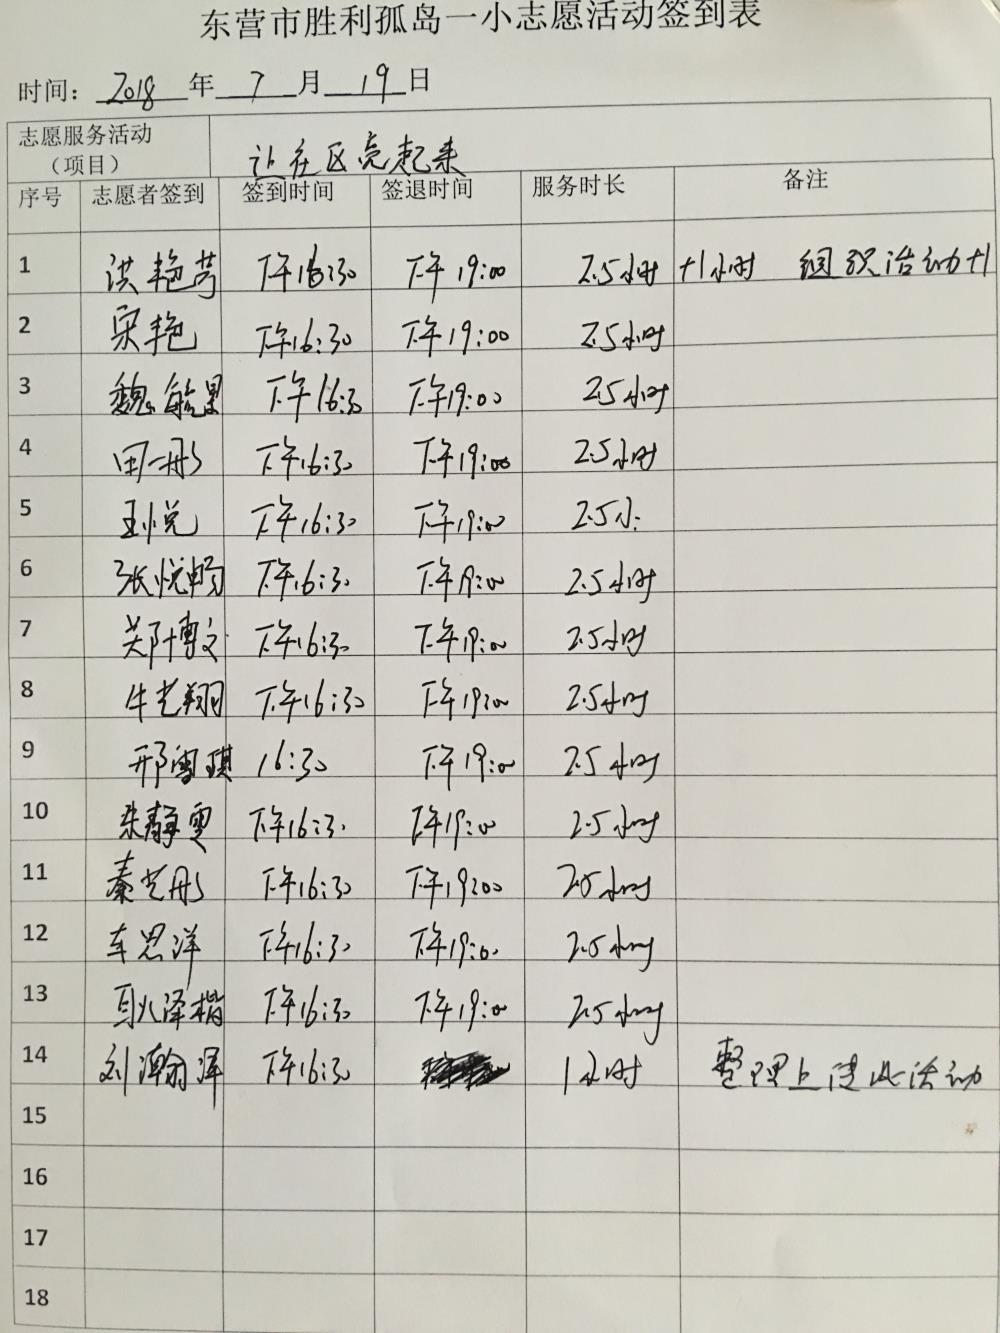 东营市胜利孤岛一小志愿活动签到表
时间： 2018 年 7 月 19 日
志愿服务活动（项目） 让社区亮起来
序号 志愿者签到 签到时间 签退时间 服务时长 备注
1 洪艳芳 下午16:30 下午19:00 2.5小时 +1小时 组织活动+1
2 宋艳 下午16:30 下午19:00 2.5小时
3 魏毓景 下午16:3 下午19:00 2.5小时
4 田一彤 下午16:30 下午19:00 2.5小时
5 王悦 下午16:30 下午19:00 2.5小
6 张悦畅 下午16:30 下午19:00 2.5小时
7 郑博文 下午16:30 下午19:00 2.5小时
8 牛艺翔 下午16:30 下午19:00 2.5小时
9 邢雪琪 16:30 下午19:00 2.5小时
10 朱静雯 下午16:3 下午19:00 2.5小时
11 秦艺彤 下午16:30 下午19:00 2.5小时
12 车思洋 下午16:30 下午19:00 2.5小时
13 耿泽楷 下午16:30 下午19:00 2.5小时
14 刘瀚泽 下午16:30 1小时 整理上传此活动
15
16
17
18